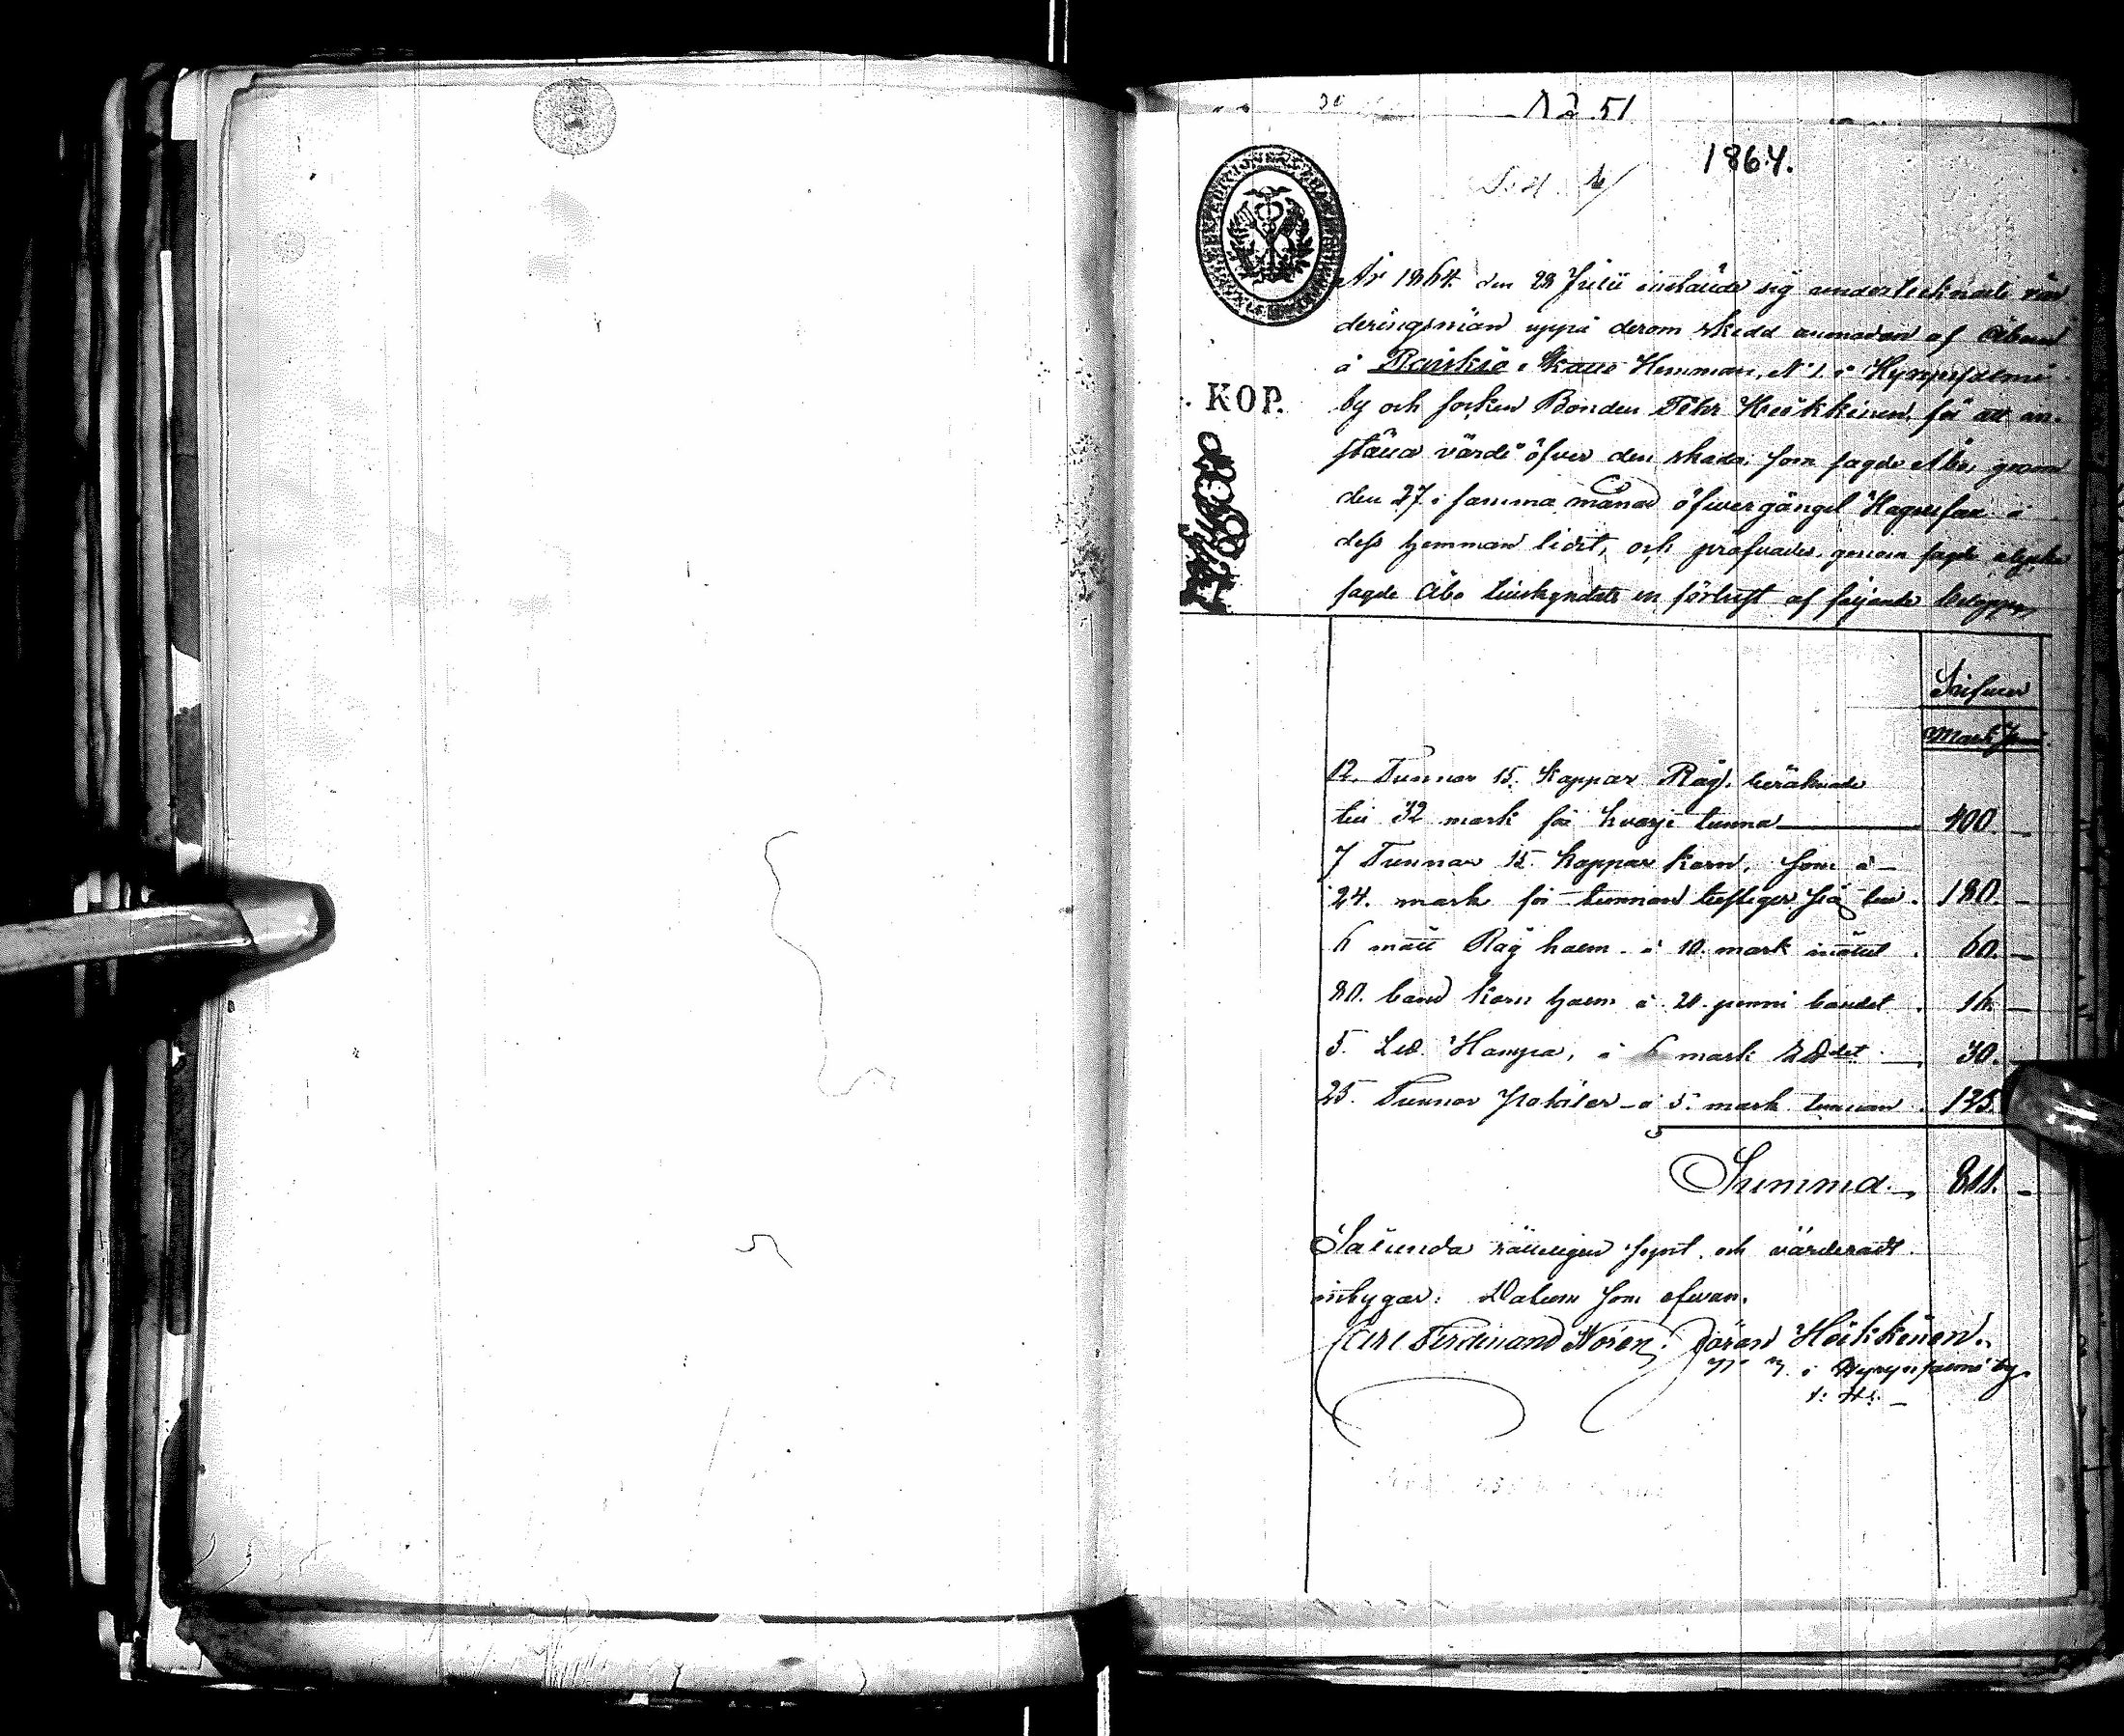 No 51
1864.
År 1864 den 28 Julii instälde sig undertecknade vär
deringsmän uppå derom skedd anmodan af Åboen
å Räiskiö Skatte Hemman, N:o 1. i Hyrynsalmi
by och socken Bonden Pehr Heikkinen, för att an-
KOP.
ställa värde öfver den skada, som sagde Åbo, genom
den 27 i samma månad öfvergångel Hagelskur å
dess hemman lidit, och pröfvades, genom sagde olycka
sagde Åbo tillskyndats en förlust af följande belopp;
Silfver
Mark Penni
12. Tunnor 15. Kappar Råg, beräknade
till 32 mark för hvarje tunna 400. —
7 Tunnor 15. Kappar Korn, som à
24. mark för tunnan bestiger sig till 180. —
6 mått Råg halm à 10. mark måttet 60. —
80. band Korn halm à 20. penni bandet 16. —
5. Lid. Hampa, à 6 mark Lid:det 30.
25. Tunnor Potäter à 5. mark tunnan 125.
Summa 811. —
Sålunda rätteligen synt och värderadt
intygar: Datum som ofvan.
Carl Ferdinand Norén. Göran Heikkinen.
N:o 3 i Hyrynsalmi by.